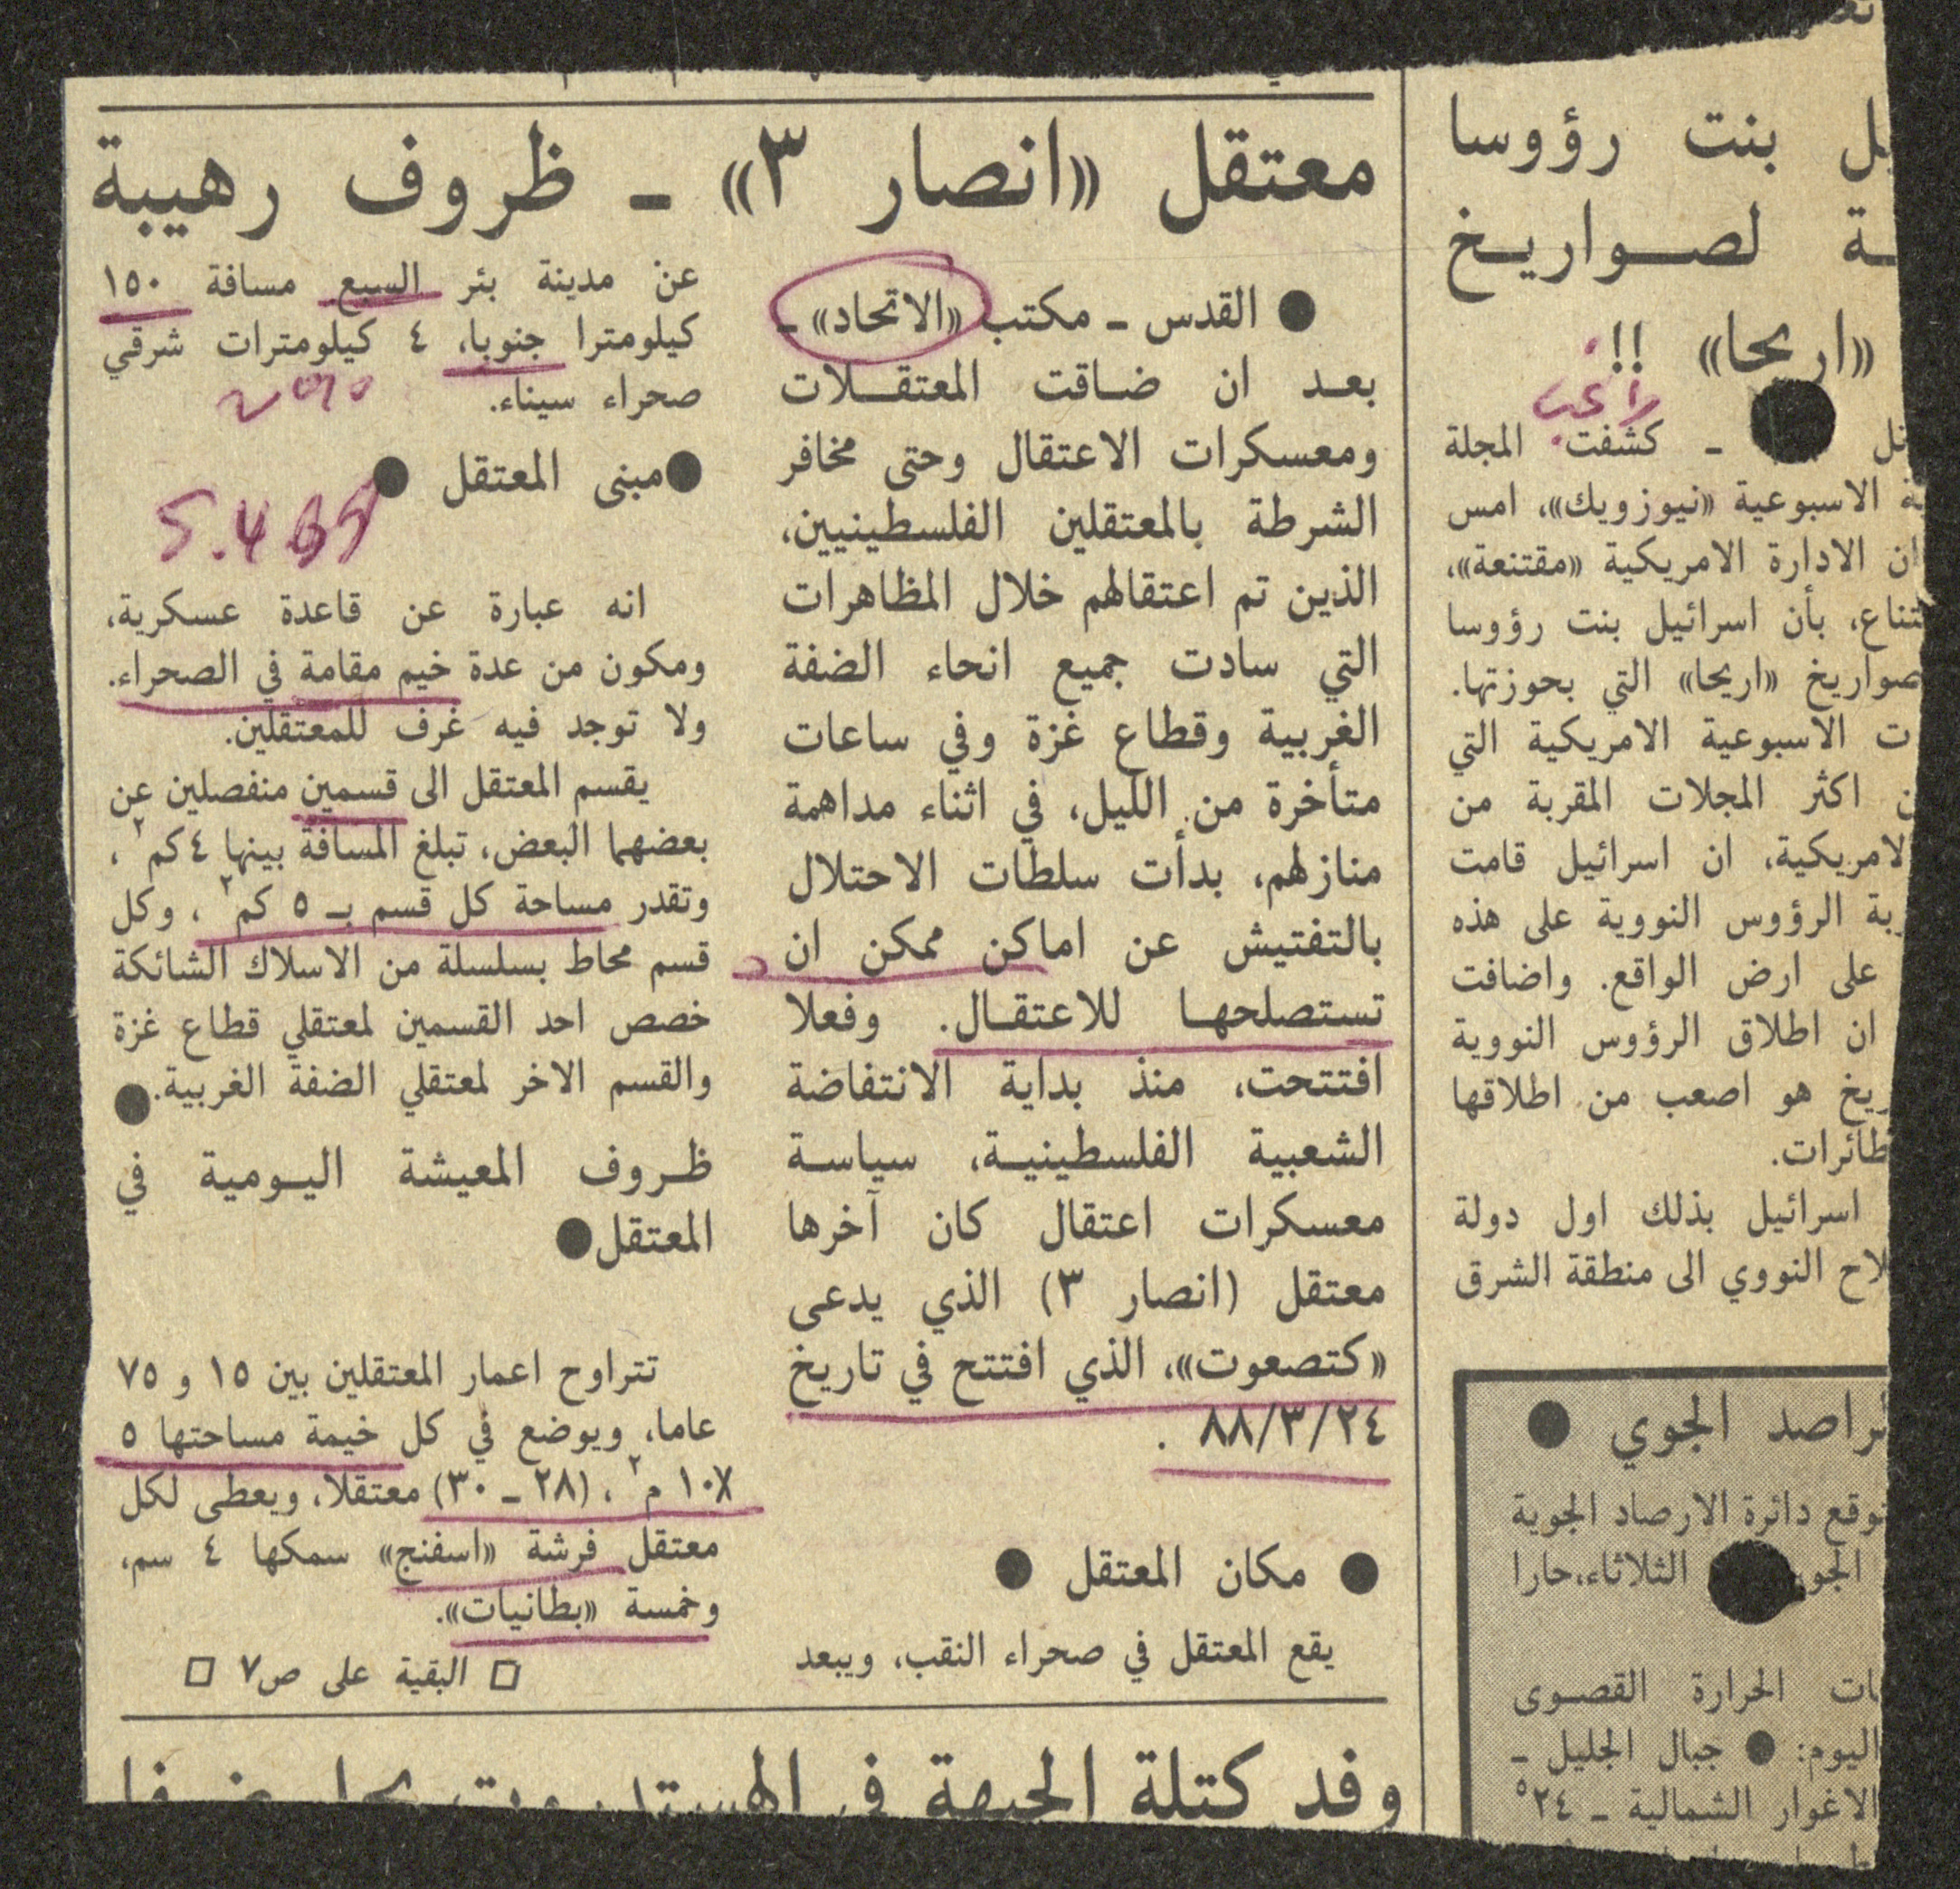 معتقل «انصار ٣» ـ ظروف رهيبة
● القدس ـ مكتب «الاتحاد» ـ
بعد ان ضاقت المعتقلات
ومعسكرات الاعتقال وحتى مخافر
الشرطة بالمعتقلين الفلسطينيين،
الذين تم اعتقالهم خلال المظاهرات
التي سادت جميع انحاء الضفة
الغربية وقطاع غزة وفي ساعات
متأخرة من الليل، في اثناء مداهمة
منازلهم، بدأت سلطات الاحتلال
بالتفتيش عن اماكن ممكن ان
تستصلحها للاعتقال. وفعلا
افتتحت، منذ بداية الانتفاضة
الشعبية الفلسطينية، سياسة
معسكرات اعتقال كان آخرها
معتقل (انصار ٣) الذي يدعى
«كتصعوت»، الذي افتتح في تاريخ
٨٨/٣/٢٤ .
● مكان المعتقل ●
يقع المعتقل في صحراء النقب، ويبعد
عن مدينة بئر السبع مسافة ١٥٠
كيلومترا جنوبا، ٤ كيلومترات شرقي
صحراء سيناء.
●مبنى المعتقل ●
5.4 88
انه عبارة عن قاعدة عسكرية،
ومكون من عدة خيم مقامة في الصحراء.
ولا توجد فيه غرف للمعتقلين.
يقسم المعتقل الى قسمين منفصلين عن
بعضهما البعض، تبلغ المسافة بينها ٤كم٢ ،
وتقدر مساحة كل قسم بـ ٥ كم٢ ، وكل
قسم محاط بسلسلة من الاسلاك الشائكة
خصص احد القسمين لمعتقلي قطاع غزة
والقسم الاخر لمعتقلي الضفة الغربية.●
ظروف المعيشة اليومية في
المعتقل●
تتراوح اعمار المعتقلين بين ١٥ و ٧٥
عاما، ويوضع في كل خيمة مساحتها ٥
x١٠ م٢ ، (٢٨ ـ ٣٠) معتقلا، ويعطى لكل
معتقل فرشة «اسفنج» سمكها ٤ سم،
وخمسة «بطانيات».
□ البقية على ص٧ □
وفد كتلة الجبهة في
بنت رؤوسا
لصواريخ
«اريحا» !!
ـ كشفت المجلة
الاسبوعية «نيوزويك»، امس
ان الادارة الامريكية «مقتنعة»،
بأن اسرائيل بنت رؤوسا
صواريخ «اريحا» التي بحوزتها.
الاسبوعية الامريكية التي
اكثر المجلات المقربة من
ان اسرائيل قامت
الرؤوس النووية على هذه
على ارض الواقع. واضافت
ان اطلاق الرؤوس النووية
هو اصعب من اطلاقها
طائرات.
اسرائيل بذلك اول دولة
النووي الى منطقة الشرق
الجوي ●
دائرة الارصاد الجوية
الثلاثاء،حارا
الحرارة القصوى
اليوم: ● جبال الجليل ـ
الاغوار الشمالية ـ ٢٤°